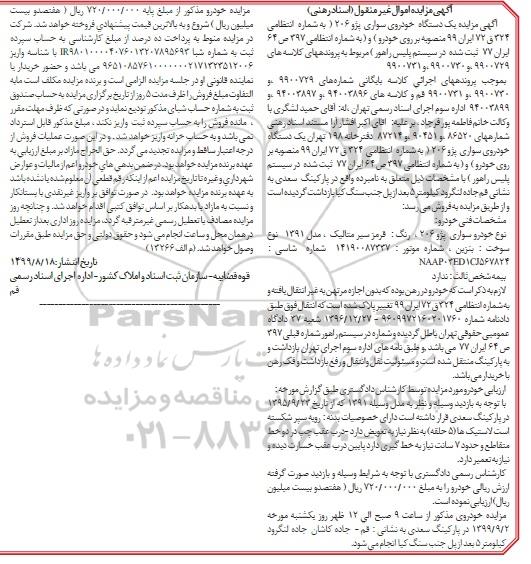 آگهی مزایده اموال غیر منقول (اسناد رهنی)
آگهی مزایده یک دستگاه خودروی سواری پژو ۲۰۶ (به شماره انتظامی
۳۲۴ ق ۷۲ ایران ۹۹ منصوبه بر روی خودرو) و (به شماره انتظامی ۳۹۷ ص ۶۴
ایران ۷۷ ثبت شده در سیستم پلیس راهور) مربوط به پرونده‌های کلاسه های
۹۹۰۰۷۲۹ و ۹۹۰۰۷۳۰ و ۹۹۰۰۷۳۱
بموجب پرونده‌های اجرائی کلاسه بایگانی شماره‌های ۹۹۰۰۷۲۹ و
۹۹۰۰۷۳۰ و ۹۹۰۰۷۳۱ قم و کلاسه های ۹۴۰۰۳۸۹۶ و ۹۴۰۰۳۸۹۸ و
۹۴۰۰۳۸۹۹ اداره سوم اجرای اسناد رسمی تهران، له: آقای حمید لشگری با
وکالت خانم فاطمه پور فرجاد و علیه: آقای اکبر افشار از مستند اسناد رهنی
شماره‎های ۸۶۵۲۰ و ۹۰۴۵۱ و ۸۷۲۱۴ دفترخانه ۱۹۸ تهران یک دستگاه
خودروی سواری پژو ۲۰۶ (به شماره انتظامی ۳۲۴ ق ۷۲ ایران ۹۹ منصوبه بر
روی خودرو) و (به شماره انتظامی ۳۹۷ ص ۶۴ ایران ۷۷ ثبت شده در سیستم
پلیس راهور) با مشخصات ذیل متعلق به نامبرده واقع در پارکینگ سعدی به
نشانی قم جاده لنگرود کیلومتر ۵ بعد از پل جنب سنگ کیا بازداشت گردیده است
و از طریق مزایده به فروش می رسد:
مشخصات فنی خودرو:
نوع خودرو سواری پژو ۲۰۶، رنگ: قرمز سیر متالیک، مدل ۱۳۹۱ نوع
سوخت: بنزین، شماره موتور: ۱۴۱۹۰۰۸۷۳۳۷ شماره شاسی:
NAAP۰۳ED۱CJ۵۶۷۸۲۴
بیمه شخص ثالث: ندارد
لازم به ذکر است که خودرو در رهن بوده که بدون اجازه مرتهن به غیر انتقال یافته و
به شماره انتظامی ۳۲۴ ق ۷۲ ایران ۹۹ تغییر پلاک شده است که انتقال فوق طبق
دادنامه شماره ۹۶۰۹۹۷۲۱۶۰۲۰۱۷۶۰ - ۱۳۹۶/۱۲/۲۷ شعبه ۳۷ دادگاه
عمومی حقوقی تهران باطل گردیده و شماره در سیستم راهور شماره قبلی ۳۹۷
ص ۶۴ ایران ۷۷ می باشد. و طبق نامه های اداره سوم اجرای تهران بازداشت و
به پارکینگ منتقل شده است و مسئولیت نقل و انتقال و رفع بازداشت و فک رهن
با خریدار می باشد.
ارزیابی خودرو مورد مزایده توسط کارشناس دادگستری طبق گزارش مورخه:
با توجه به بازدید وسیله و نظر به مدل وسیله ۱۳۹۱ که از تاریخ ۱۳۹۵/۹/۲۳
در پارکینگ سعدی قرار داشته است دارای خصوصیات بدنه: رویه سپر شکسته
است لاستیک ها (۵ حلقه) به نظر نیاز به تعویض دارد - درب عقب جپ در دو خط
متقاطع و حدود ۷ سانت نیاز به خط گیری دارد پایین درب عقب خسارت دیده و
نیاز به تعمیر دارد.
کارشناس رسمی دادگستری با توجه به شرایط وسیله و بازدید صورت گرفته
ارزش ریالی خودرو را به مبلغ ۷۲۰/۰۰۰/۰۰۰ ریال (هفتصد و بیست میلیون
ریال) ارزیابی نموده است.
مزایده خودروی مذکور از ساعت ۹ صبح الی ۱۲ ظهر روز یکشنبه مورخه
۱۳۹۹/۹/۲ در پارکینگ سعدی به نشانی: قم - جاده کاشان جاده لنگرود
کیلومتر ۵ بعد از پل جنب سنگ کیا انجام می شود.
مزایده خودرو مذکور از مبلغ پایه ۷۲۰/۰۰۰/۰۰۰ ریال (هفتصد و بیست
میلیون ریال) شروع و به بالاترین قیمت پیشنهادی فروخته خواهد شد. شرکت
در مزایده منوط به پرداخت ده درصد از مبلغ کارشناسی به حساب سپرده
ثبت به شماره شبا IR۹۸۰۱۰۰۰۰۴۰۷۶۰۱۳۲۰۷۸۹۵۶۹۳ با شناسه واریز
۹۶۵۱۰۸۵۷۶۱۰۰۰۰۰۰۰۲۱۷۱۳۲۳۵۱۲۰۰۶ می باشد و حضور خریدار یا
نماینده قانونی او در جلسه مزایده الزامی است و برنده مزایده مکلف است مابه
التفاوت مبلغ فروش را ظرف مدت ۵ روز از تاریخ برگزاری مزایده به حساب صندوق
ثبت به شماره حساب شبای مذکور تودیع نماید و در صورتی که ظرف مهلت مقرر
، مانده فروش را به حساب سپرده ثبت واریز نکند، مبلغ مذکور قابل استرداد
نمی باشد و به حساب خزانه واریز خواهد شد. و در این صورت عملیات فروش از
درجه اعتبار ساقط و مزایده تجدید می گردد. حق الحراج مازاد بر مبلغ ارزیابی به
عهده برنده مزایده خواهد بود. در ضمن بدهی های خودرو اعم از مالیات و عوارض
شهرداری و غیره تا تاریخ مزایده اعم از اینکه رقم قطعی آن معلوم شده یا نشده باشد
به عهده برنده مزایده خواهد بود. در صورت توافق بر واریز غیرنقدی با بستانکار
و نسبت به مازاد با بدهکار بر اساس توافق کتبی اقدام خواهد شد. و چنانچه روز
مزایده مصادف با تعطیل رسمی غیرمترقبه گردد، مزایده روز اداری بعد از تعطیل
در همان محل و ساعت انجام می شود و حقوق دولتی و حق مزایده طبق مقررات
وصول خواهد شد. (م الف ۱۳۲۶۶)
تاریخ انتشار: ۱۴۹۹/۸/۱۸
قوه قضاییه - سازمان ثبت اسناد و املاک کشور - اداره اجرای اسناد رسمی
قم
ParsNamaddata
پایگاه اطلاع رسانی مناقصه و مزایده
۰۲۱-۸۸۳۴۹۶۷۰-۵